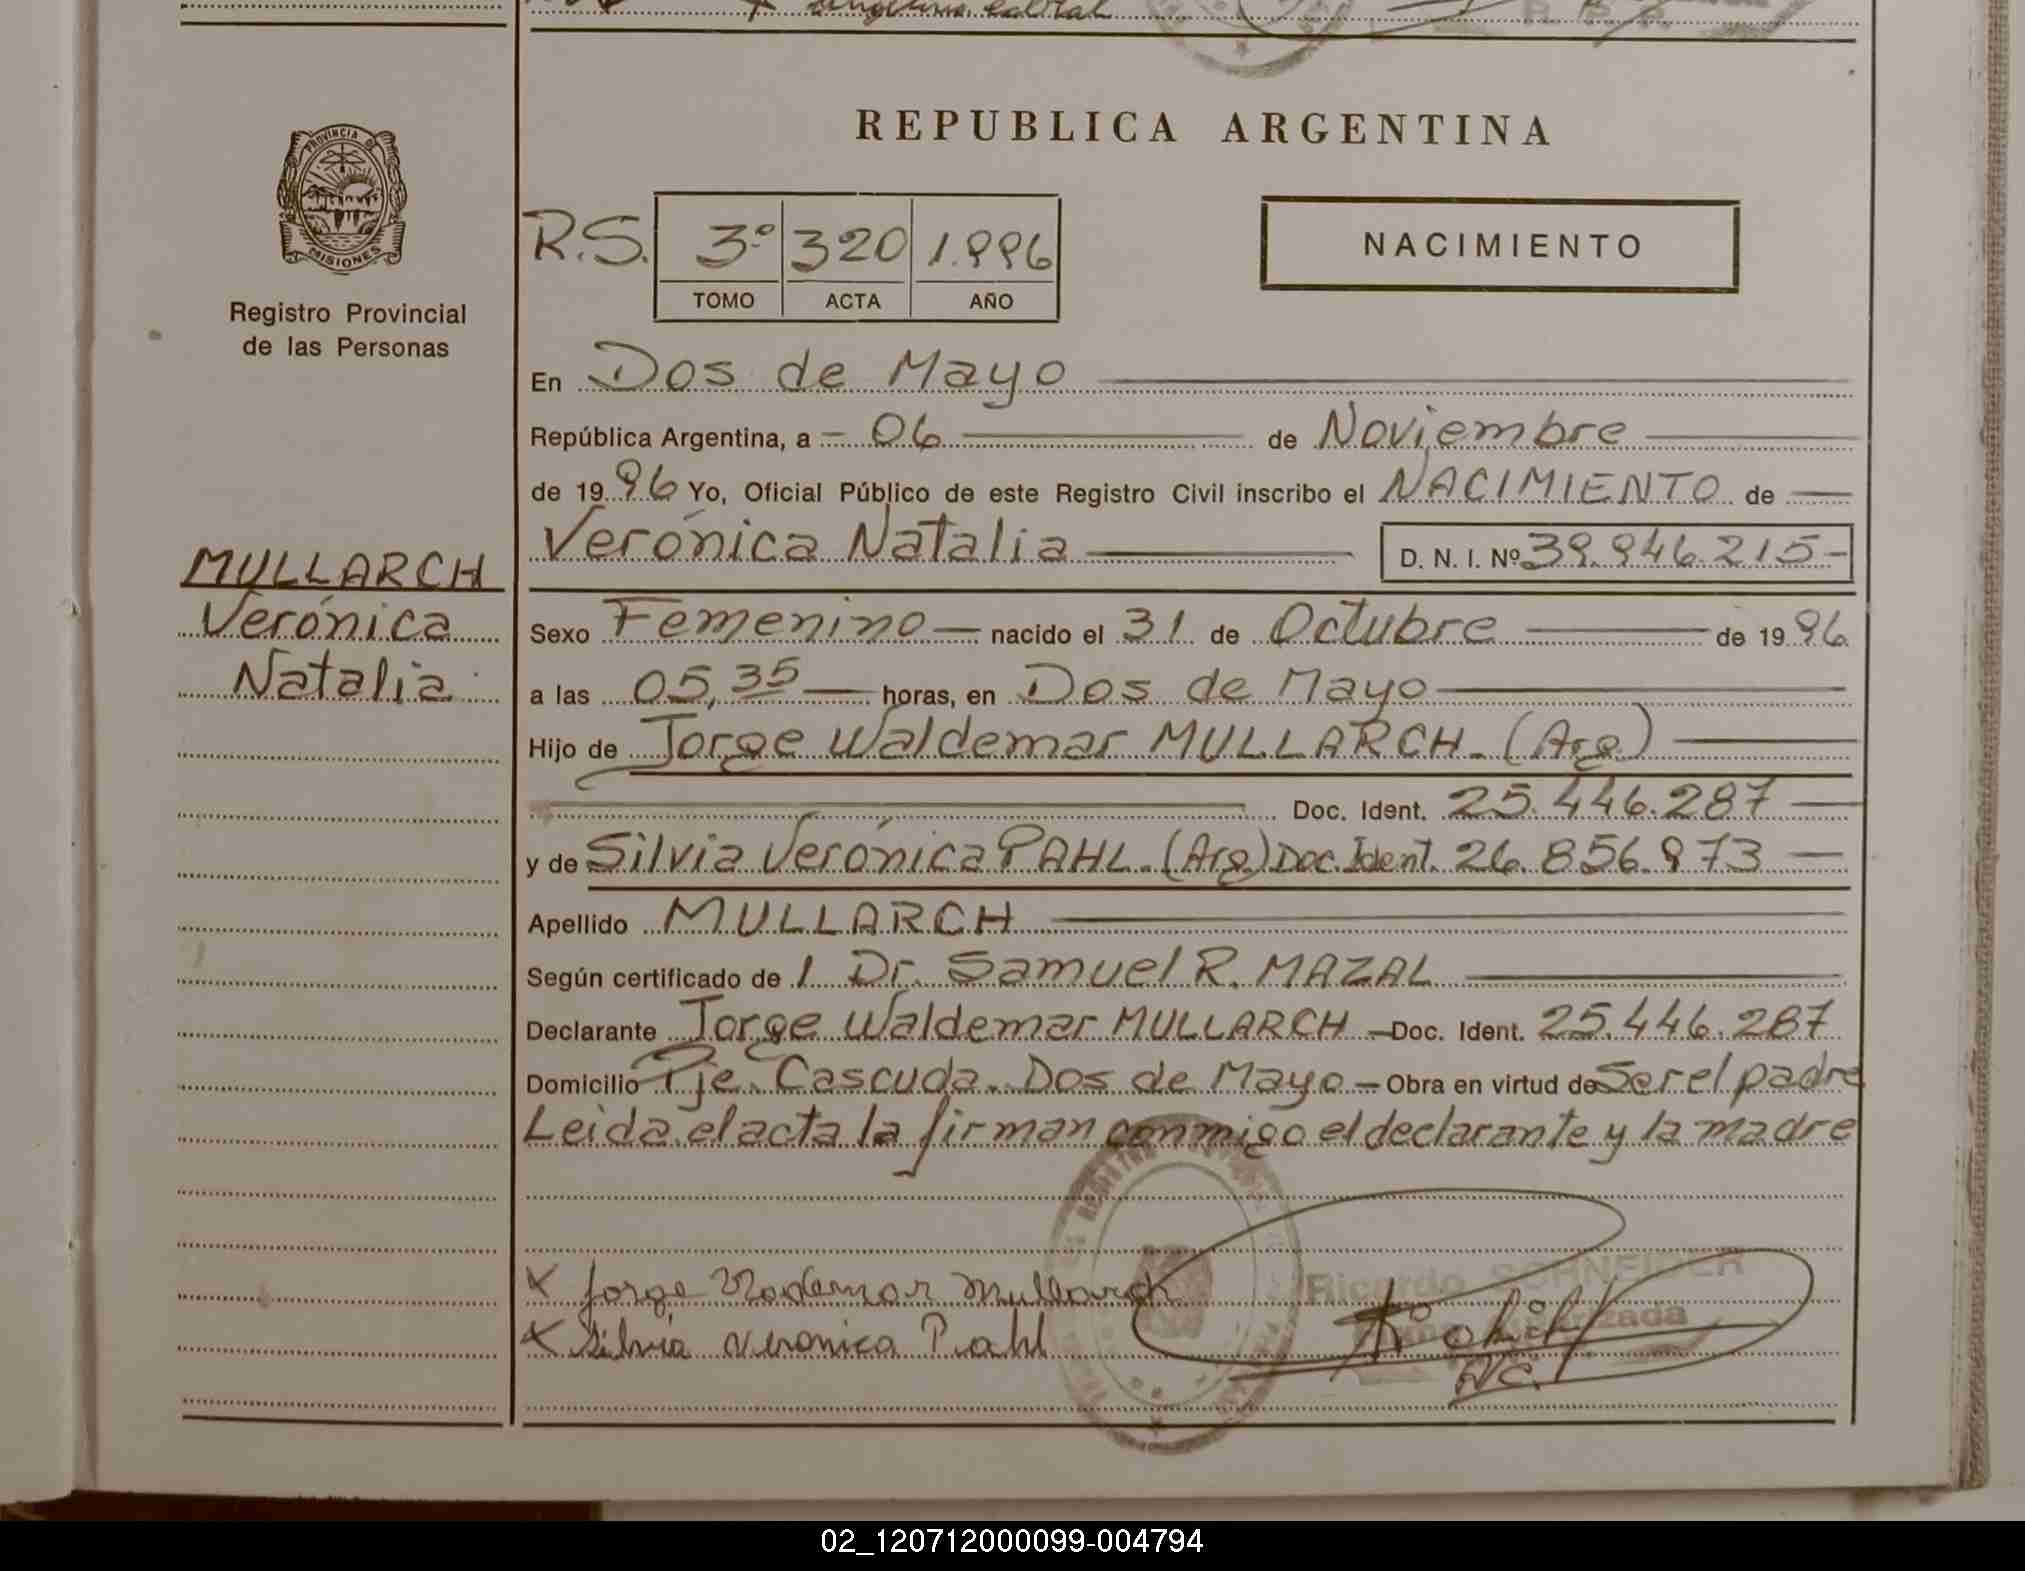 Angelina Cabral
REPUBLICA ARGENTINA
PROVINCIA DE
MISIONES
Registro Provincial
de las Personas
R.S. 3º 320 1.996
TOMO ACTA AÑO
NACIMIENTO
En Dos de Mayo
República Argentina, a - 06 de Noviembre
de 1996 Yo, Oficial Público de este Registro Civil inscribo el NACIMIENTO de
Verónica Natalia D. N. I. Nº 39.946.215-
MULLARCH
Verónica
Natalia
Sexo Femenino nacido el 31 de Octubre de 1996
a las 05,35 horas, en Dos de Mayo
Hijo de Jorge Waldemar MULLARCH. (Arg)
Doc. Ident. 25.446.287
y de Silvia Verónica PAHL. (Arg) Doc. Ident. 26.856.973
Apellido MULLARCH
Según certificado de 1 Dr. Samuel R. MAZAL
Declarante Jorge Waldemar MULLARCH - Doc. Ident. 25.446.287
Domicilio Pje. Cascuda. Dos de Mayo - Obra en virtud de Ser el padre
Leida el acta la firman conmigo el declarante y la madre
x Jorge Wademar Mullarch
x Silvia Veronica Pahl
Ricardo SCHNEIDER
02_120712000099-004794